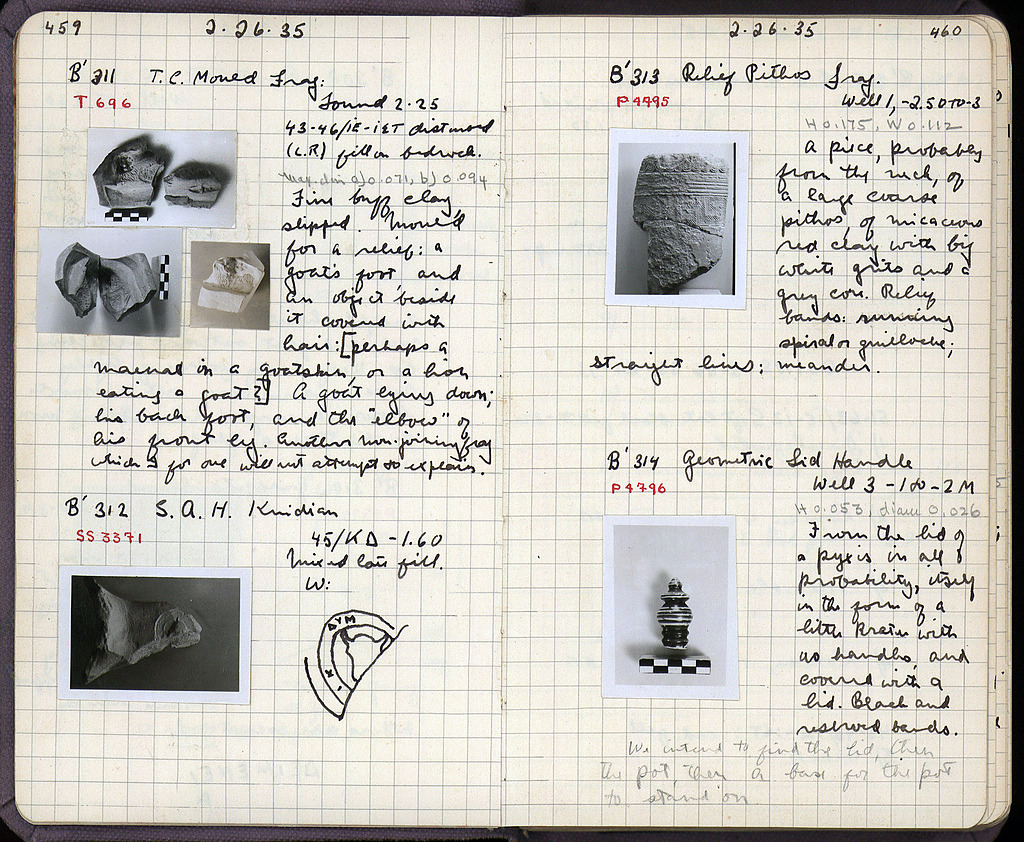 459
2·26·35
B' 311 T.C. Mould Frag.
T 696
Found 2·25
43-46/IE-IET disturbed
(L.R) fill on bedrock.
Max. dim a) 0.071, b) 0.094
Fine buff clay
slipped. Mould
for a relief: a
goat's foot and
an object beside
it covered with
hair: [perhaps a
maenad in a goatskin, or a lion
eating a goat?] A goat lying down;
his back foot, and the "elbow" of
his front leg. Another non-joining frag
which I for one will not attempt to explain.
B' 312 S.A.H. Knidian
SS 3371
45/KΔ -1.60
Mixed late fill.
W:
ΔYM
K
2·26·35
460
B' 313 Relief Pithos frag.
P 4795
Well 1, -2.50 to -3
H 0.175, W 0.112
A piece, probably
from the neck, of
a large coarse
pithos, of micaceous
red clay with big
white grits and a
grey core. Relief
bands: running
spiral or guilloche;
straight lines; meander.
B' 314 Geometric Lid Handle
P 4796
Well 3 -1 to -2 M
H 0.053, diam 0.026
From the lid of
a pyxis in all
probability, itself
in the form of a
little krater with
no handles, and
covered with a
lid. Black and
reserved bands.
We intend to find the lid, then
the pot, then a base for the pot
to stand on.